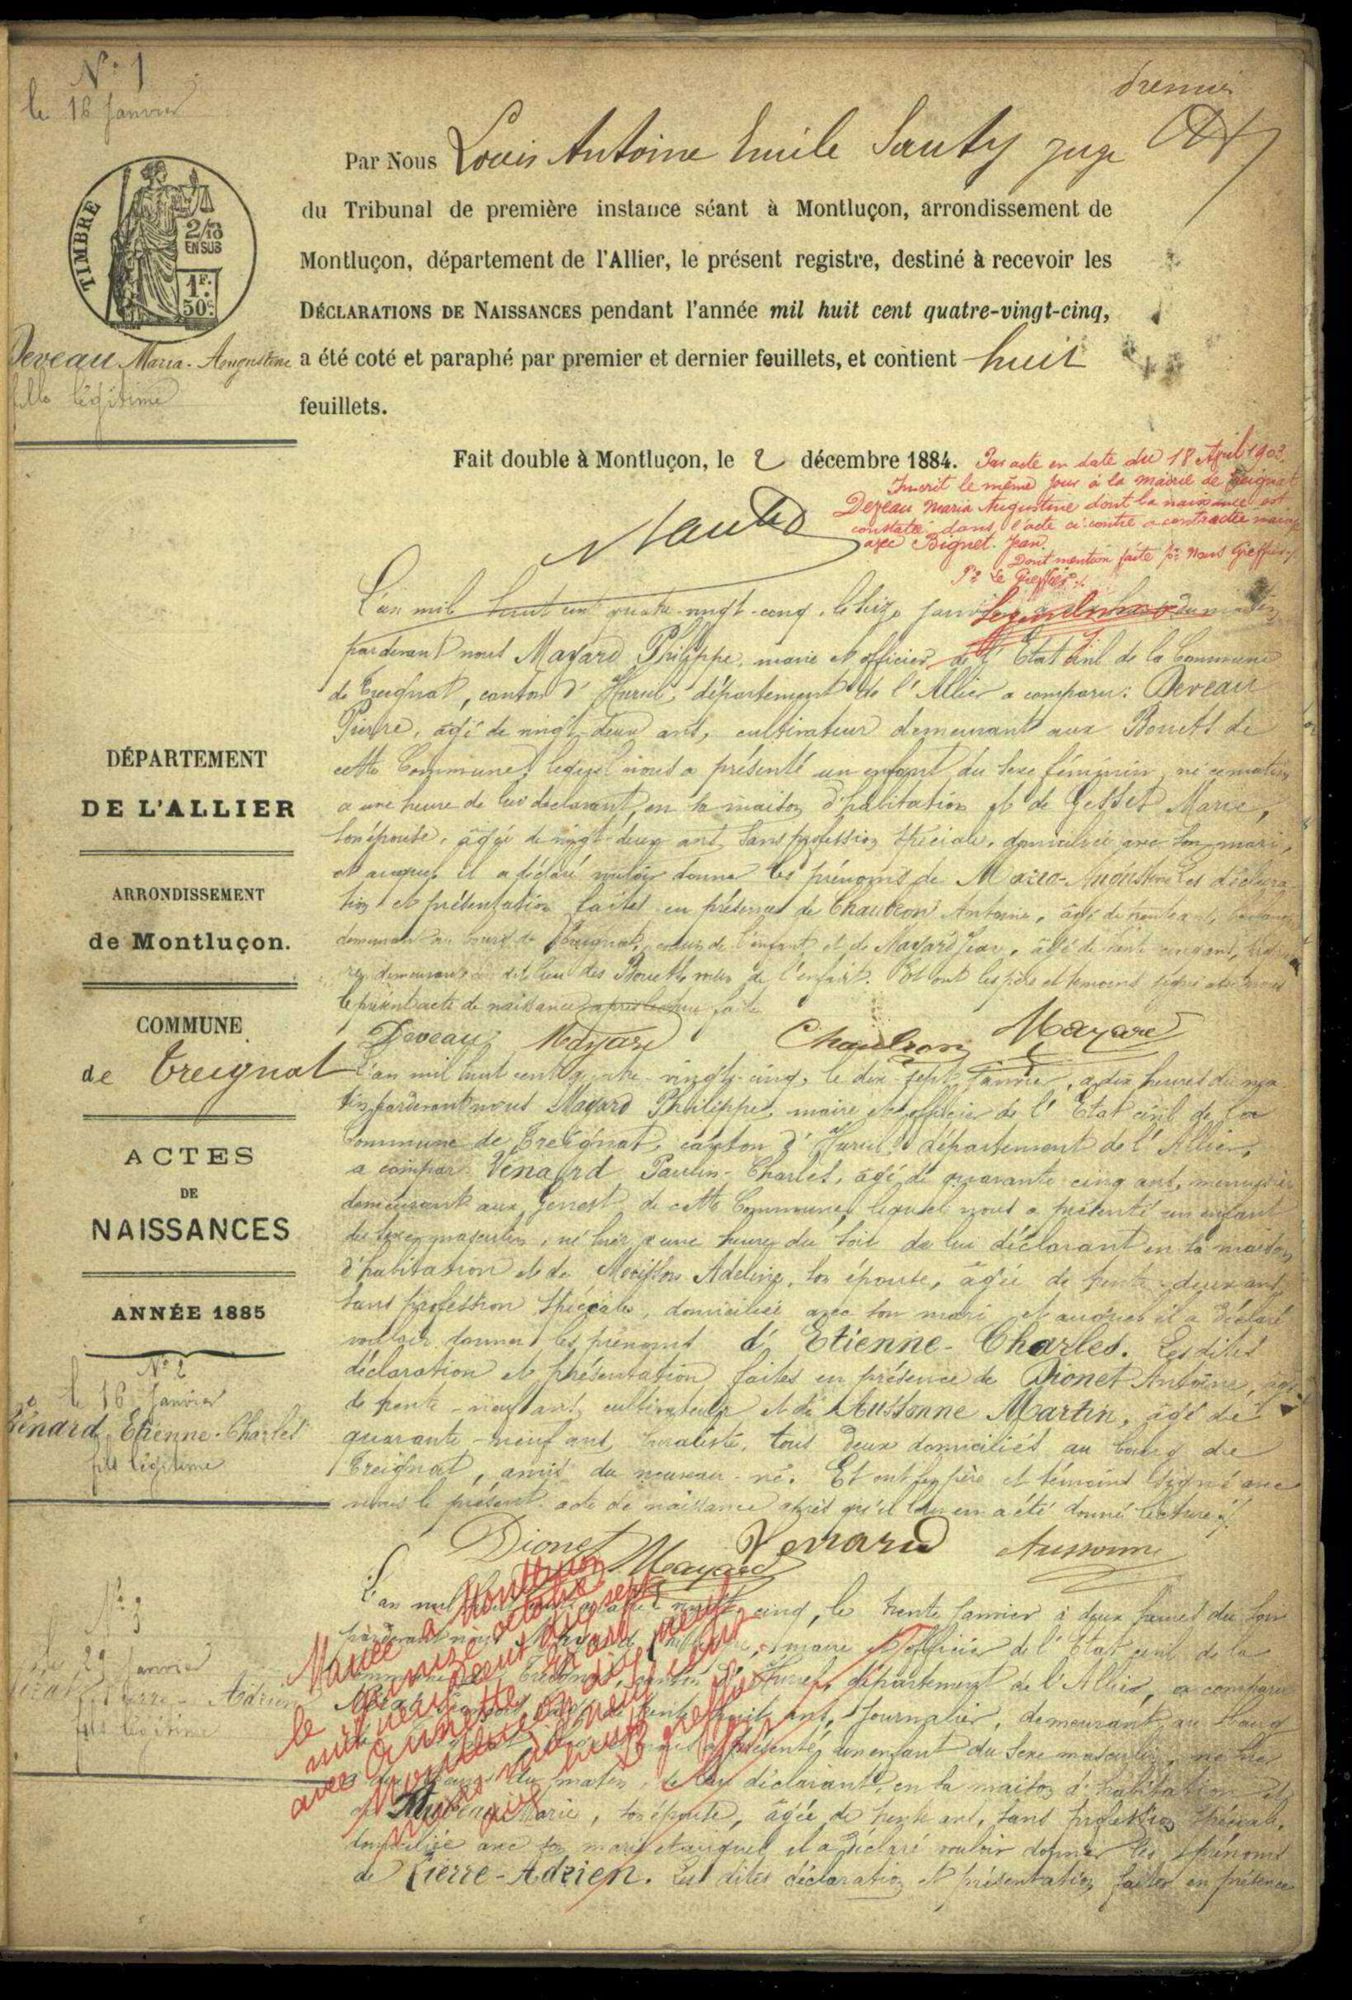 premier
N° 1
le 16 Janvier
TIMBRE
2/10
EN SUS
1F.
50c
Deveau Maria-Augustine
fille légitime
Par Nous Louis Antoine Emile Sauty juge
du Tribunal de première instance séant à Montluçon, arrondissement de
Montluçon, département de l'Allier, le présent registre, destiné à recevoir les
DÉCLARATIONS DE NAISSANCES pendant l'année mil huit cent quatre-vingt-cinq,
a été coté et paraphé par premier et dernier feuillets, et contient huit
feuillets.
Fait double à Montluçon, le 2 décembre 1884.
Sauty
Par acte en date du 18 April 1903
Inscrit le même jour à la mairie de Treignat
Deveau Maria Augustine dont la naissance est
constatée dans l'acte ci-contre a contracté mariage
avec Bignet Jean.
Dont mention faite par Nous Greffier
Pr Le Greffier
DÉPARTEMENT
DE L'ALLIER
ARRONDISSEMENT
de Montluçon.
COMMUNE
de Treignat
ACTES
DE
NAISSANCES
ANNÉE 1885
L'an mil huit cent quatre-vingt-cinq, le seize janvier du matin
par devant nous Mayard Philippe, maire et officier de l'Etat civil de la Commune
de Treignat, canton d'Huriel, département de l'Allier a comparu: Deveau
Pierre, âgé de vingt-deux ans, cultivateur demeurant aux Bouets de
cette Commune, lequel nous a présenté un enfant du sexe féminin, né ce matin
a une heure de lui déclarant, en sa maison d'habitation et de Gesset Marie,
son épouse, âgée de vingt-deux ans sans profession spéciale, domiciliée avec son mari,
et auquel il a déclaré vouloir donner les prénoms de Maria-Augustine Les déclara-
tion et présentation faites en présence de Chaubron Antoine, âgé de trente ans,
demeurant au bourg de Treignat, cousin de l'enfant et de Mayard Jean, âgé de
demeurant dit lieu des Bouets de l'enfant. Et ont les père et témoins signé avec nous
le présent acte de naissance après lecture faite
Deveau Mayard Chaubron Mayard
L'an mil huit cent quatre-vingt-cinq, le dix-sept janvier, a dix heures du ma-
tin, par devant nous Mayard Philippe, maire et officier de l'Etat civil de la
Commune de Treignat, canton d'Huriel département de l'Allier,
a comparu Vénard Paulin-Charles, âgé de quarante cinq ans, menuisier
demeurant aux Genest de cette Commune, lequel nous a présenté un enfant
du sexe masculin, né hier a une heure du soir de lui déclarant en sa maison
d'habitation et de Adeline, son épouse, âgée de trente-deux ans
sans profession spéciale, domiciliée avec son mari et auquel il a déclaré
vouloir donner les prénoms d'Etienne-Charles. Les dites
déclaration et présentation faites en présence de Dionet Antoine, âgé
de trente-neuf ans, cultivateur et de Aussonne Martin, âgé de
quarante-neuf ans, buraliste, tous deux domiciliés au bourg de
Treignat, amis du nouveau-né. Et ont les père et témoins signé avec
nous le présent acte de naissance après qu'il leur en a été donné lecture.
Dionet Mayard Venard Aussonne
N° 2
le 16 Janvier
Vénard Etienne-Charles
fils légitime
N° 3
29 Janvier
Pierre-Adrien
fils légitime
L'an mil huit cent quatre-vingt-cinq, le trente janvier à deux heures du soir
pardevant nous Mayard Philippe, maire et officier de l'Etat civil de la
commune de Treignat, canton d'Huriel, département de l'Allier, a comparu
de trente-huit ans, journalier, demeurant au bourg
présenté un enfant du sexe masculin, né hier
du matin, de lui déclarant, en sa maison d'habitation et
de Marie, son épouse, âgée de trente ans, sans profession spéciale,
domiciliée avec son mari et auquel il a déclaré vouloir donner les prénoms
de Pierre-Adrien. Les dites déclaration et présentation faites en présence
Marié à Montluçon
le quinze octobre
mil neuf cent dix sept
avec
Montluçon
Le greffier